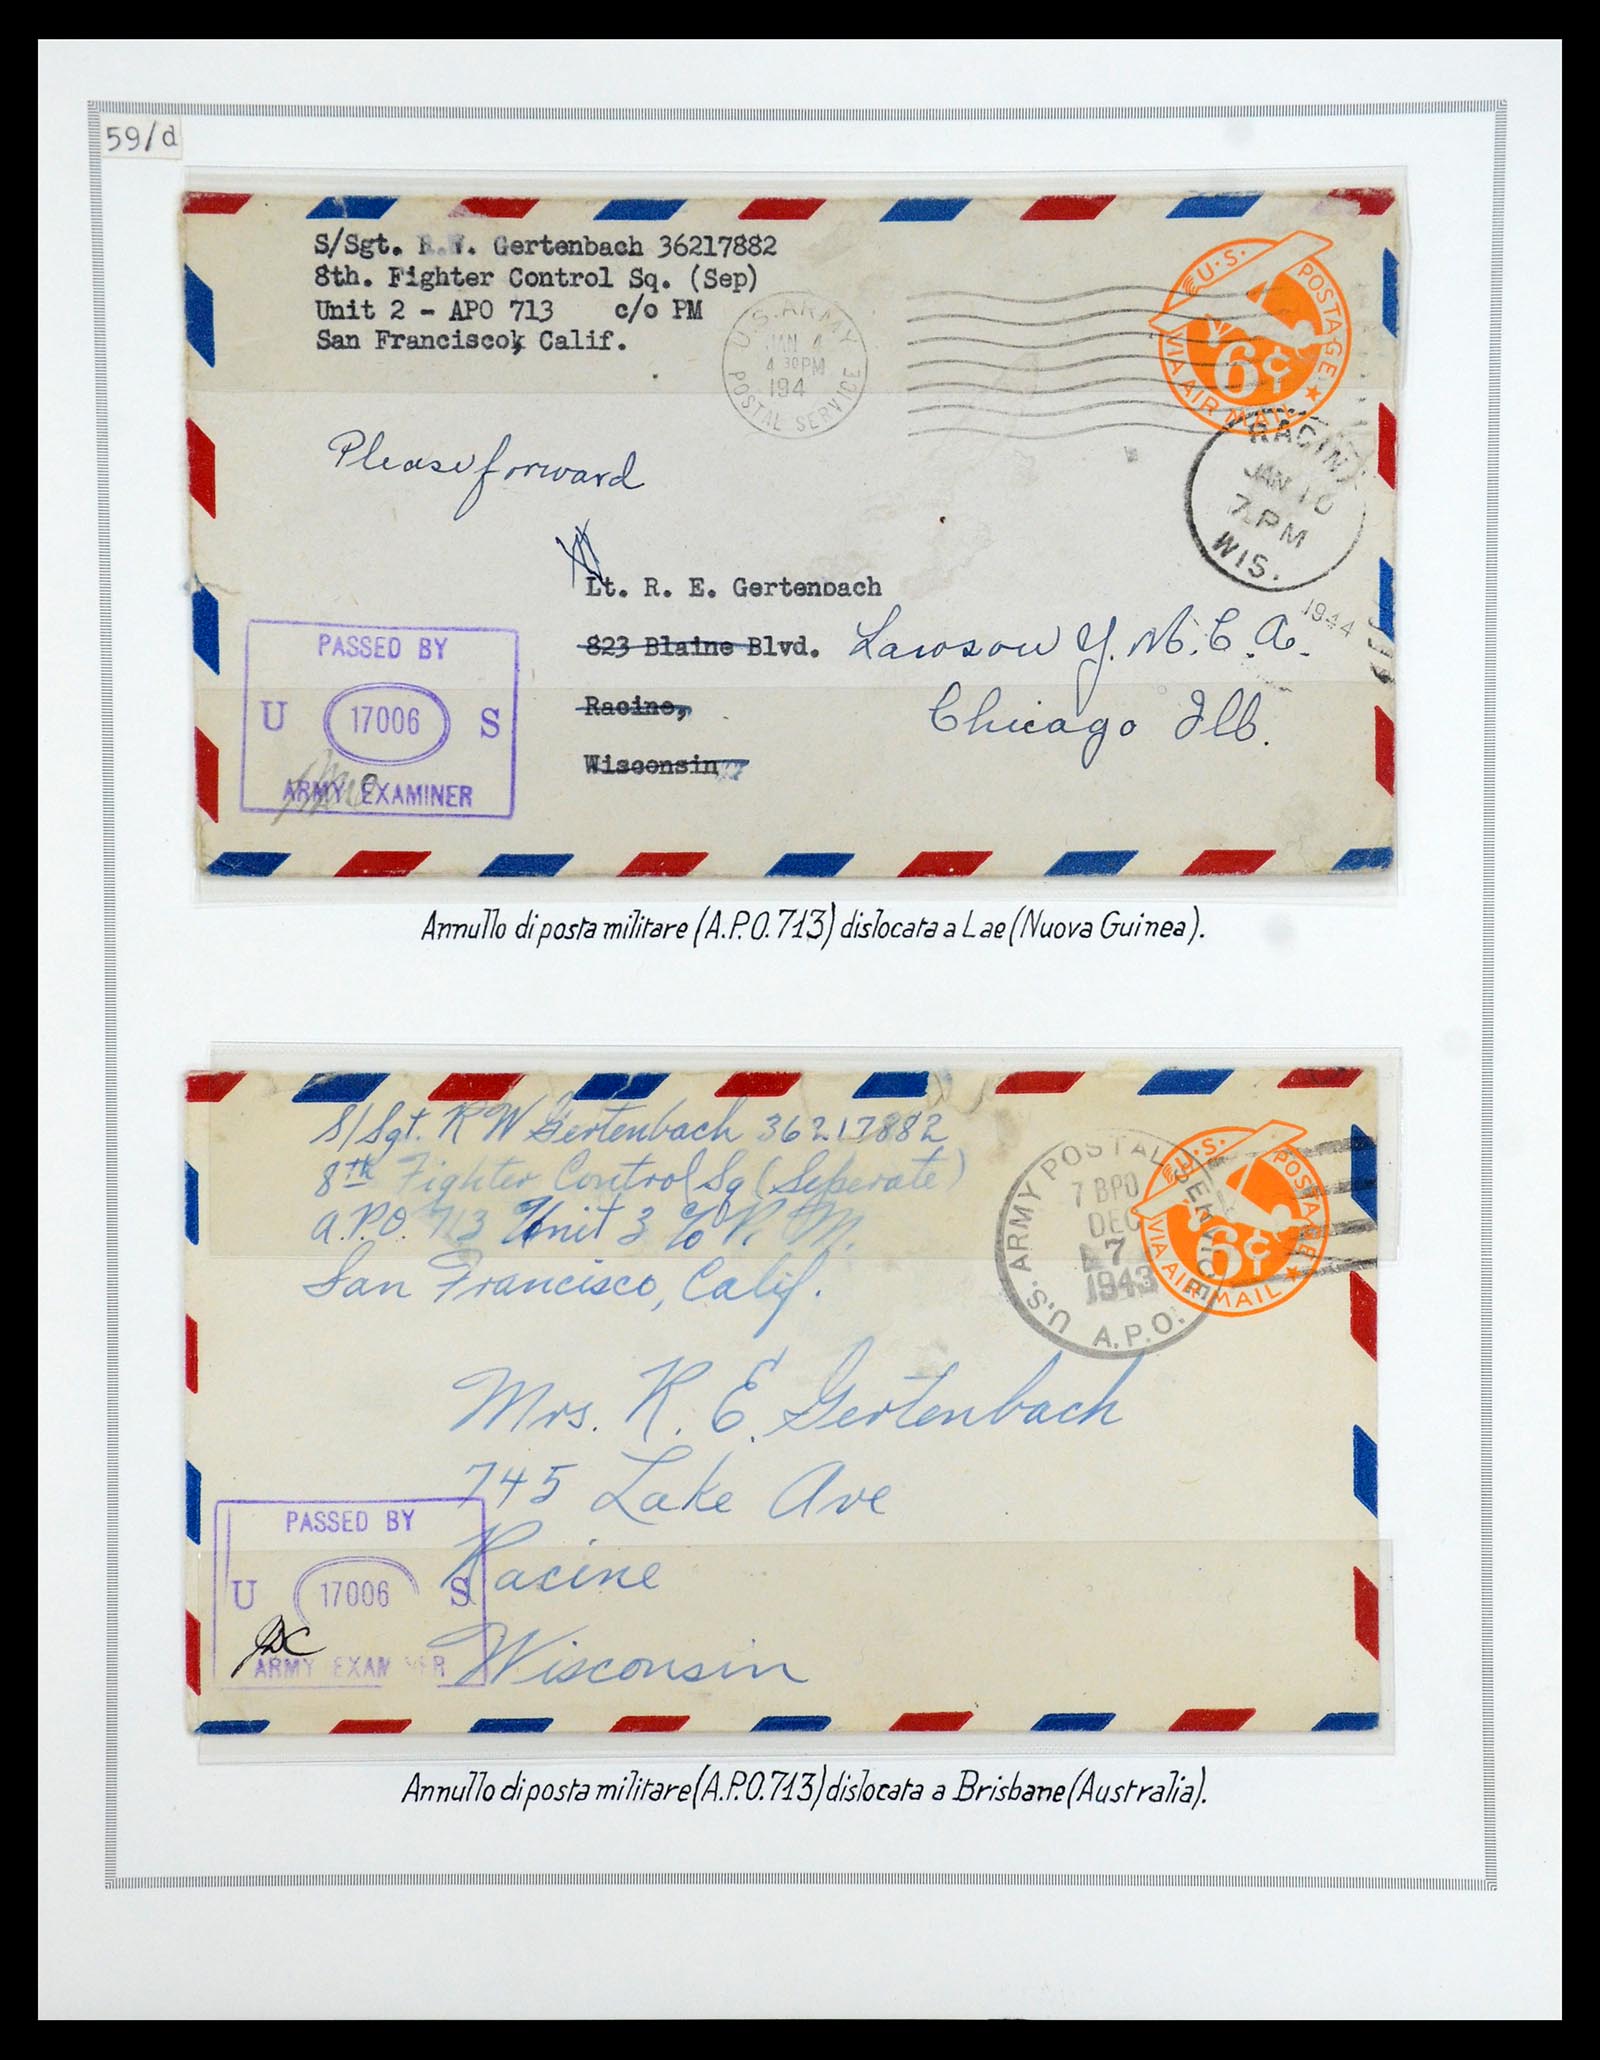 59/d
S/Sgt. R.W. Gertenbach 36217882
8th. Fighter Control Sq. (Sep)
Unit 2 - APO 713 c/o PM
San Francisco, Calif.
U.S. ARMY
JAN 4
4 30 PM
194
POSTAL SERVICE
U.S. POSTAGE
6¢
VIA AIR MAIL
RACINE
JAN 10
7 PM
WIS.
1944
Please forward
Lt. R. E. Gertenbach
823 Blaine Blvd. Lawson Y.M.C.A.
Racine, Chicago Ill.
Wisconsin
PASSED BY
U 17006 S
ARMY EXAMINER
Annullo di posta militare (A.P.O. 713) dislocata a Lae (Nuova Guinea).
S/Sgt. R W Gertenbach 36217882
8th Fighter Control Sq (Seperate)
A.P.O. 713 Unit 3 c/o P. M.
San Francisco, Calif.
U.S. ARMY POSTAL SERVICE
7 BPO
DEC
7
1943
A.P.O.
U.S. POSTAGE
6¢
VIA AIR MAIL
Mrs. R. E. Gertenbach
745 Lake Ave
Racine
Wisconsin
PASSED BY
U 17006 S
ARMY EXAMINER
Annullo di posta militare (A.P.O. 713) dislocata a Brisbane (Australia).